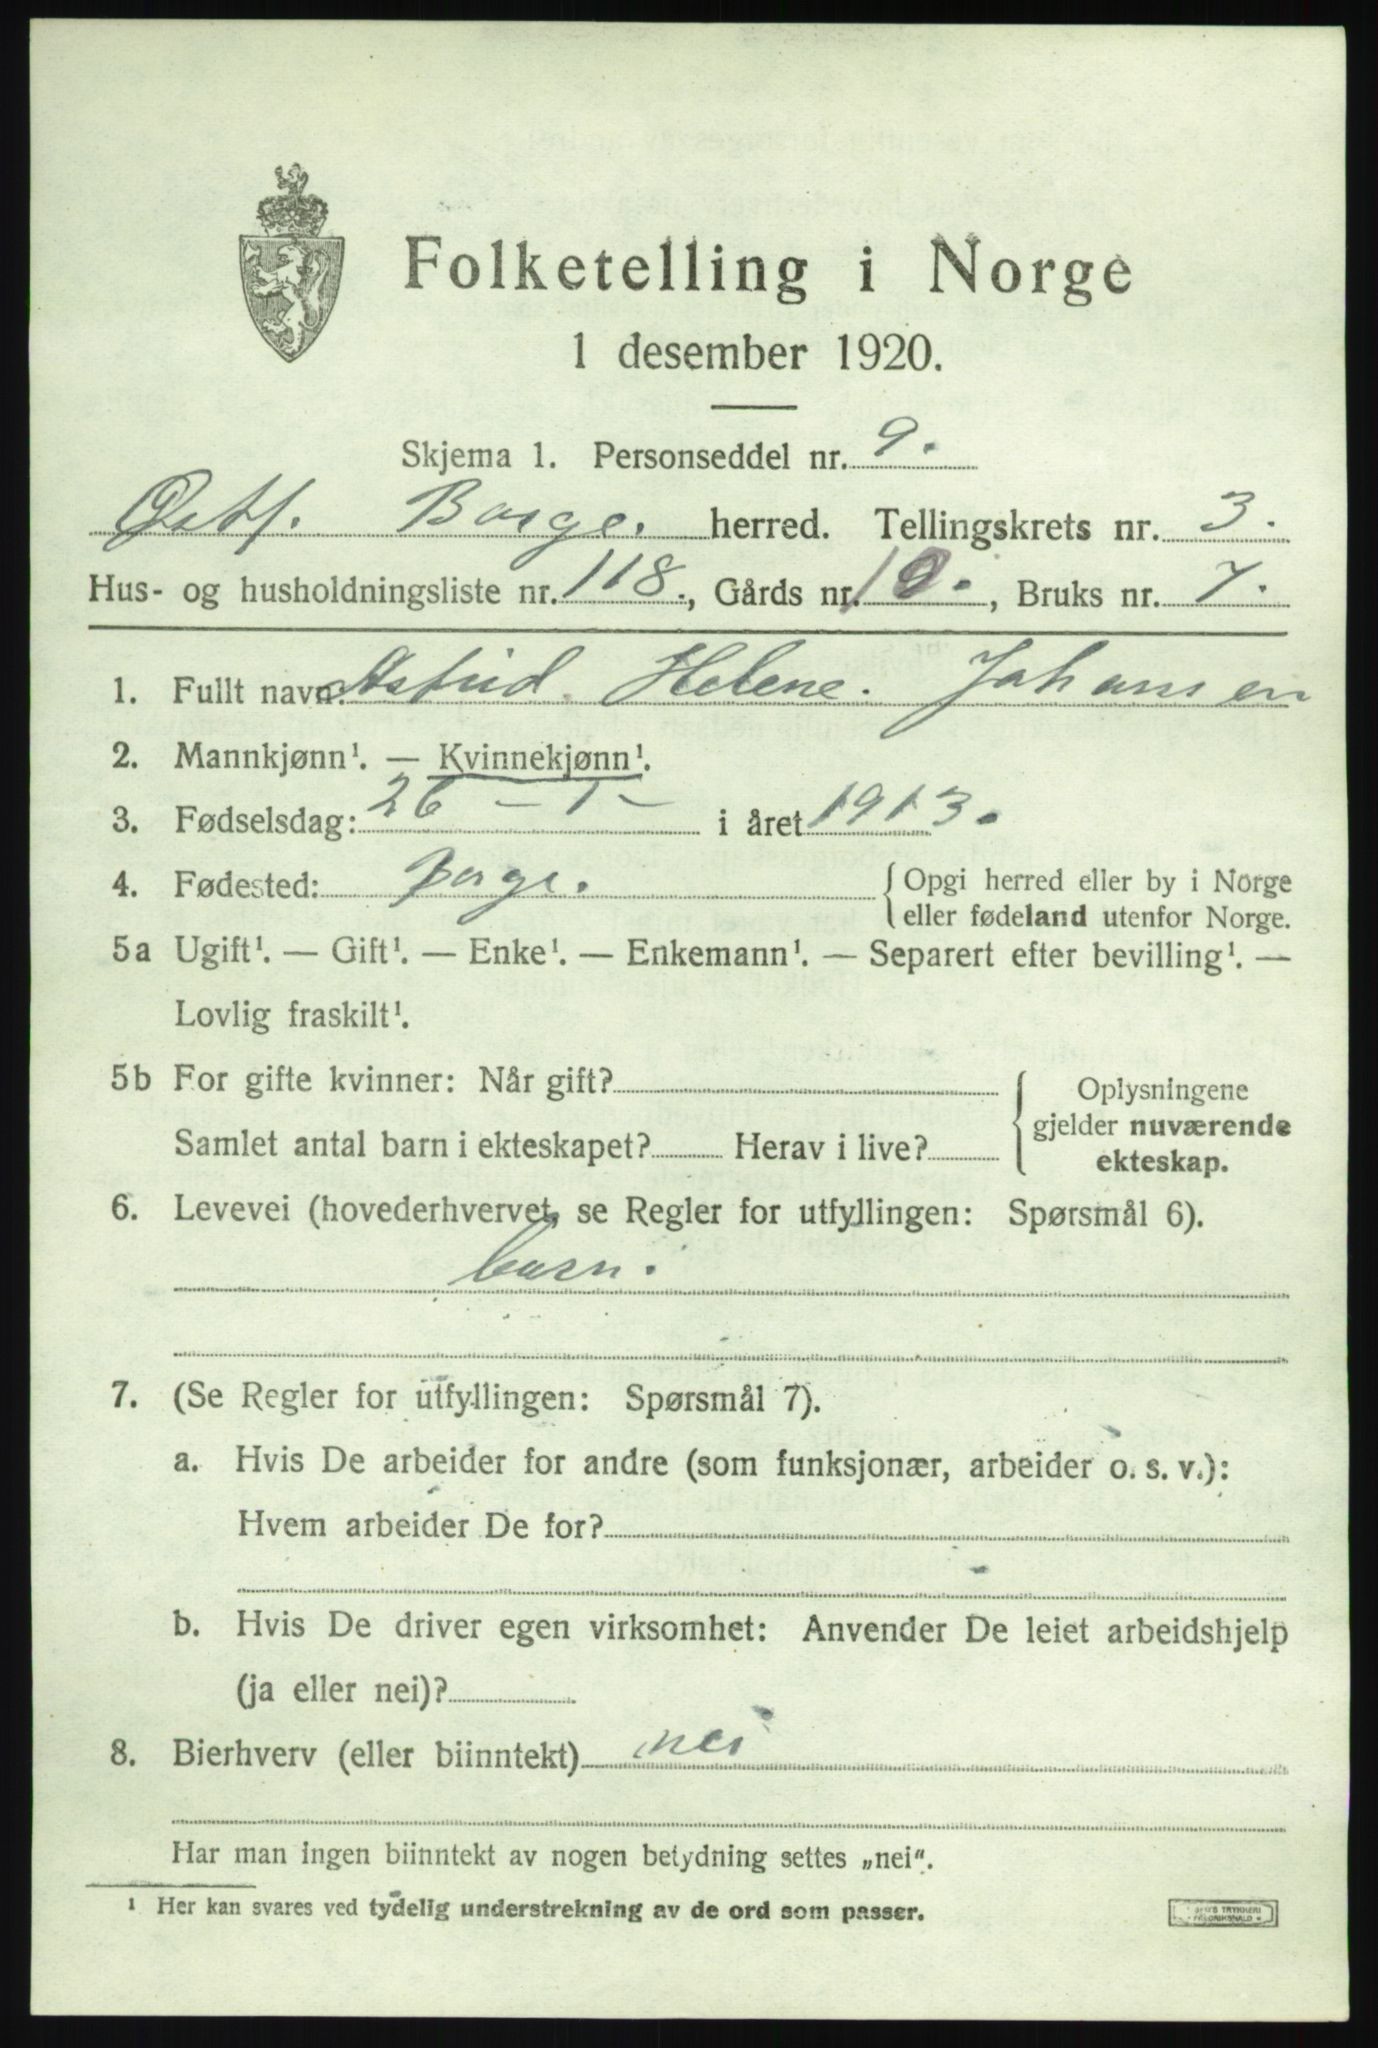 Folketelling i Norge
1 desember 1920.
Skjema 1. Personseddel nr. 9.
Østf. Borge. herred. Tellingskrets nr. 3.
Hus- og husholdningsliste nr. 118., Gårds nr. 10., Bruks nr. 7.
1. Fullt navn. Astrid Helene. Johansen
2. Mannkjønn¹. — Kvinnekjønn¹.
3. Fødselsdag: 26 – 1 – i året 1913.
4. Fødested: Borge. Opgi herred eller by i Norge
eller fødeland utenfor Norge.
5a Ugift¹. — Gift¹. — Enke¹. — Enkemann¹. — Separert efter bevilling¹. —
Lovlig fraskilt¹.
5b For gifte kvinner: Når gift? Oplysningene
gjelder nuværende
Samlet antal barn i ekteskapet? Herav i live?
ekteskap.
6. Levevei (hovederhvervet, se Regler for utfyllingen: Spørsmål 6).
barn.
7. (Se Regler for utfyllingen: Spørsmål 7).
a. Hvis De arbeider for andre (som funksjonær, arbeider o. s. v.):
Hvem arbeider De for?
b. Hvis De driver egen virksomhet: Anvender De leiet arbeidshjelp
(ja eller nei)?
8. Bierhverv (eller biinntekt) nei
Har man ingen biinntekt av nogen betydning settes „nei".
¹ Her kan svares ved tydelig understrekning av de ord som passer.
TRYKKERI